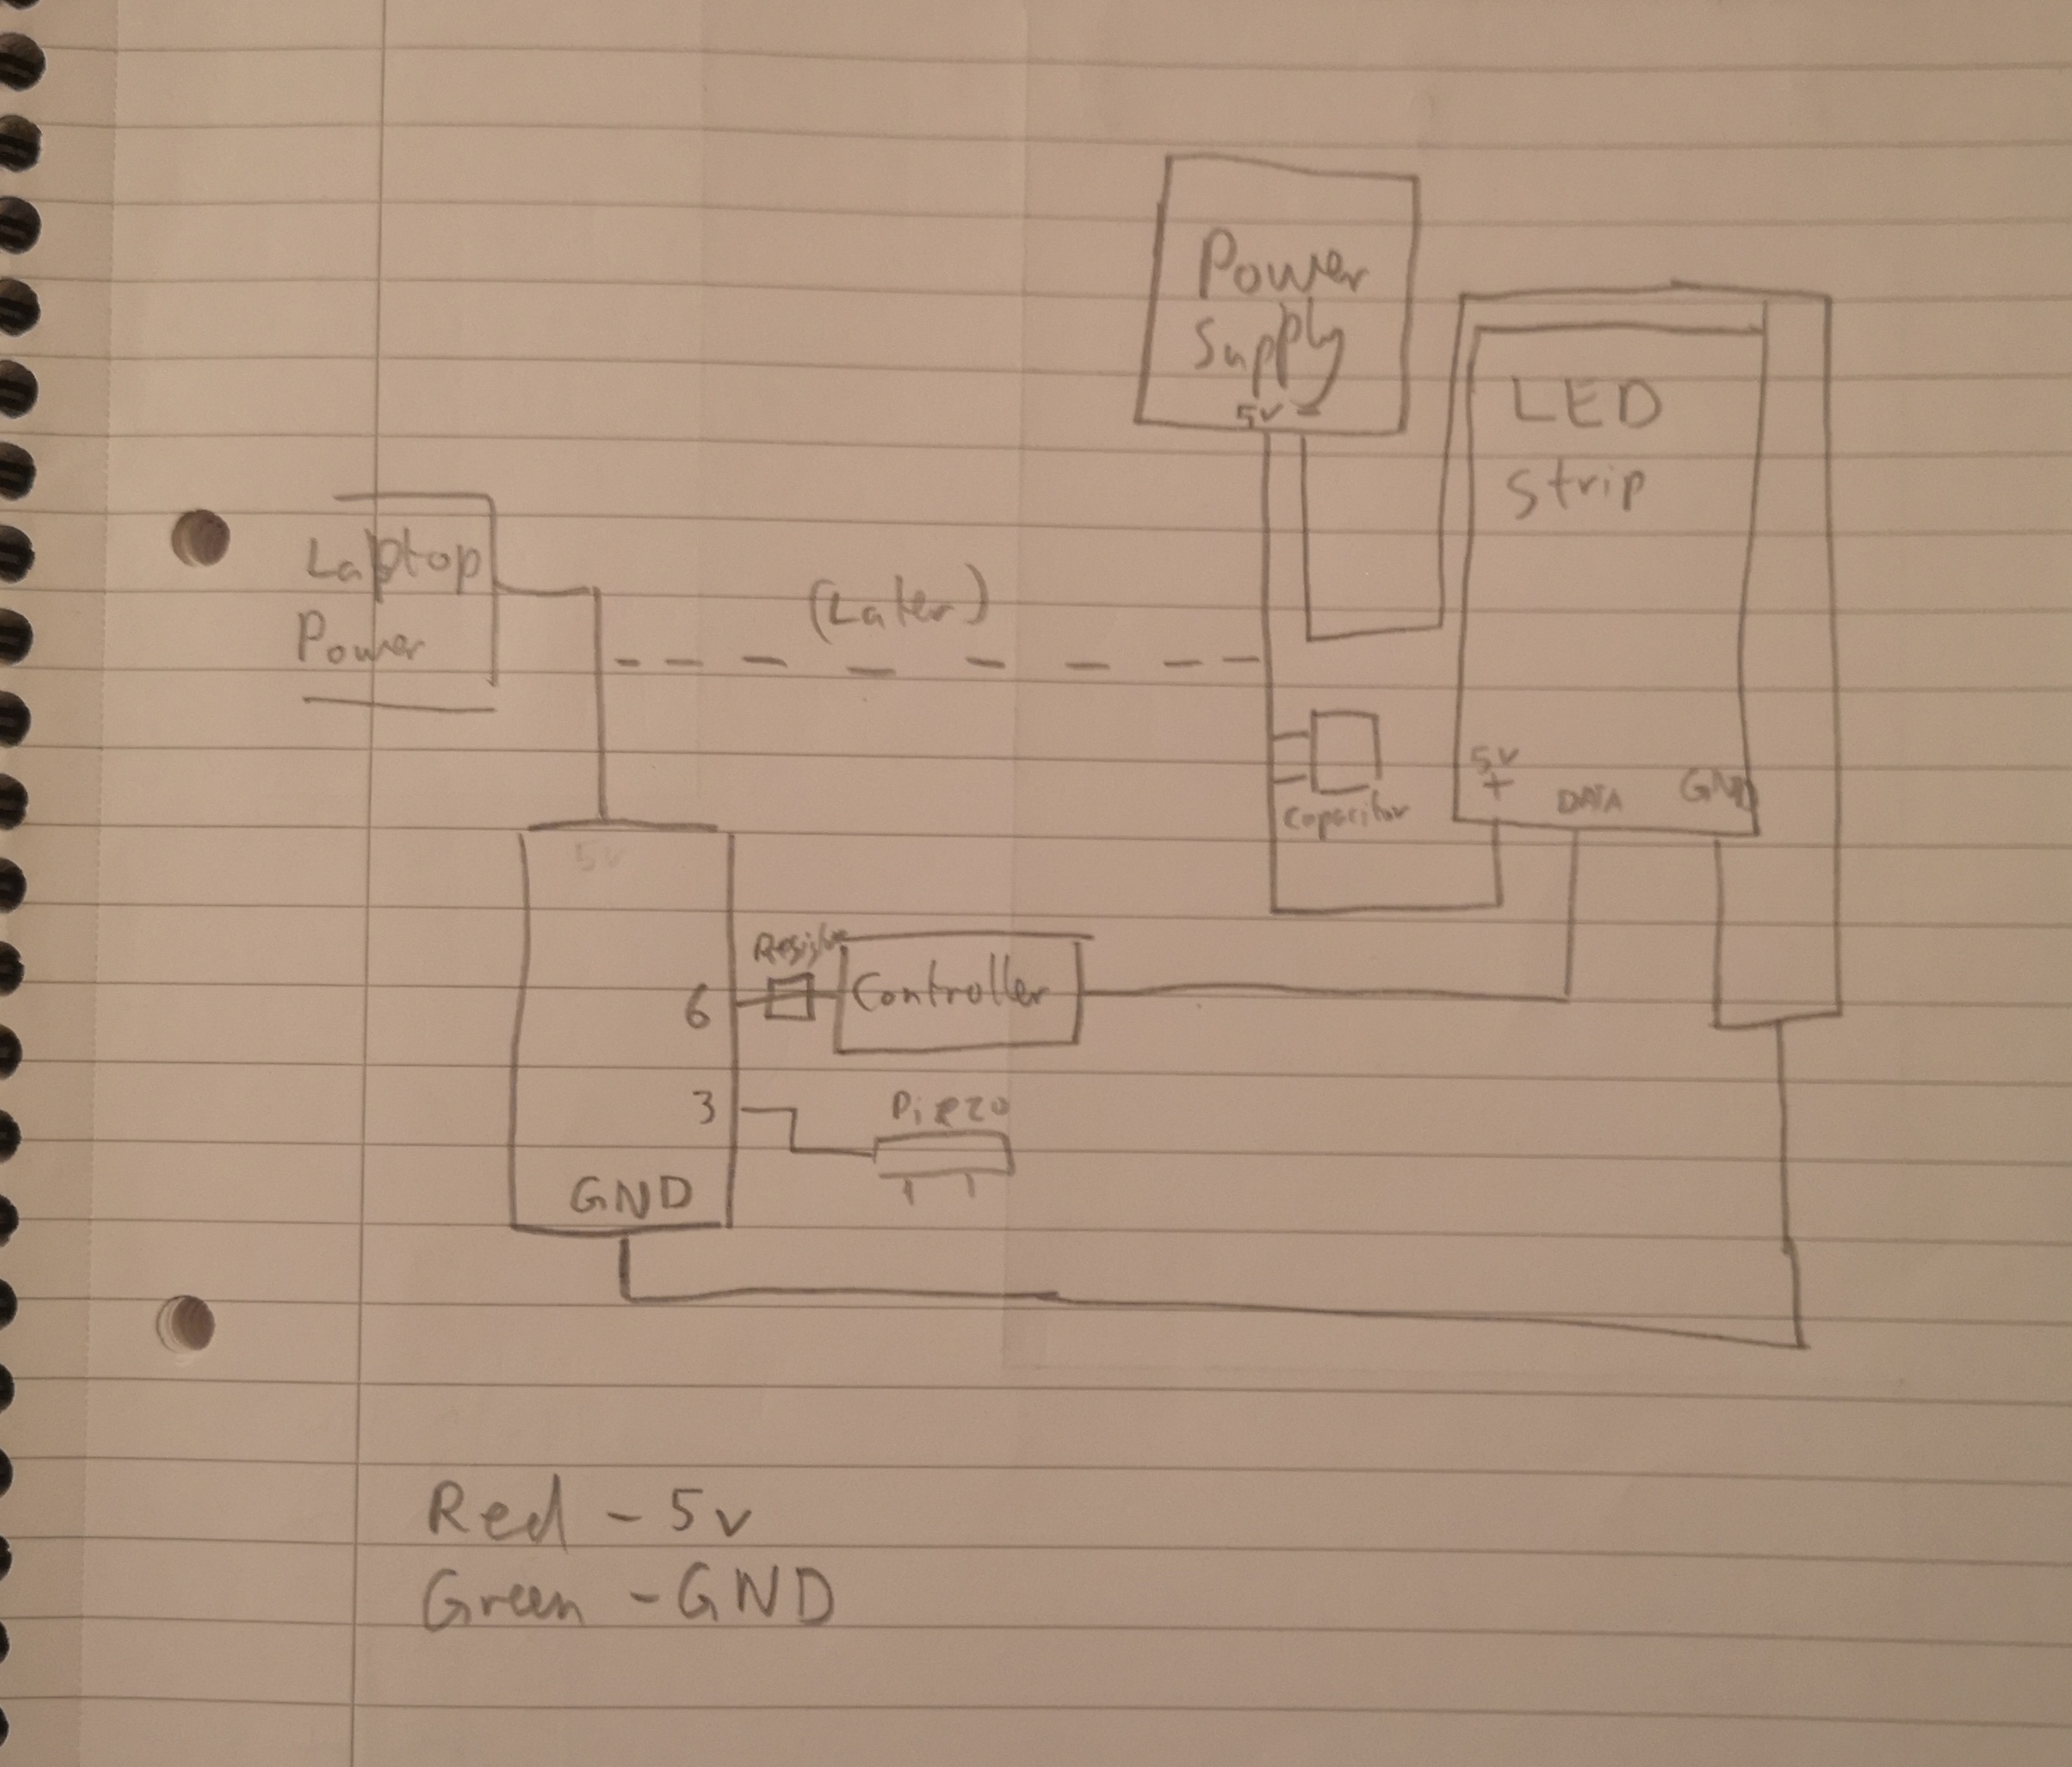 Power
Supply
5v -
LED
Strip
Laptop
Power
(Later)
5v
+
DATA
GND
Capacitor
5v
Resistor
6
Controller
3
Piezo
GND
Red - 5v
Green - GND